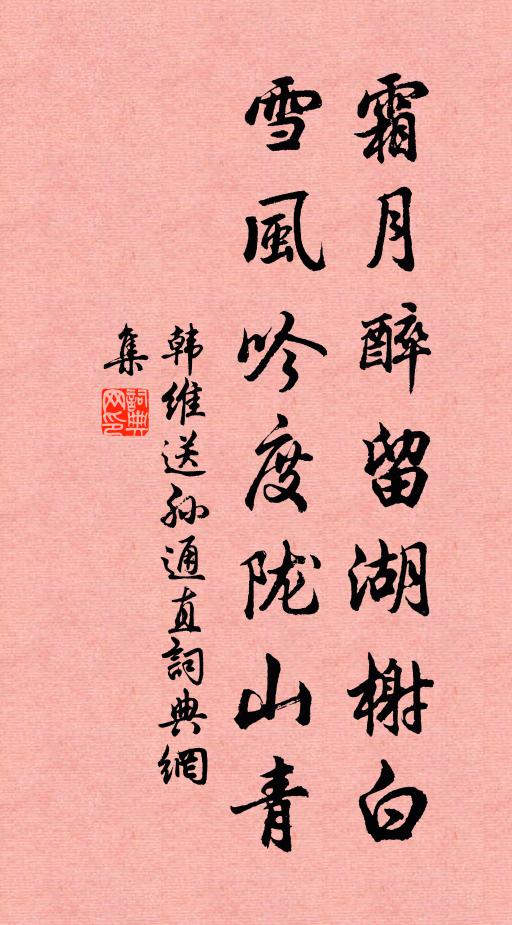 霜月醉留湖榭白
雪風吟度陇山青
韩維送孙通直詞典網
集
詞典
网印